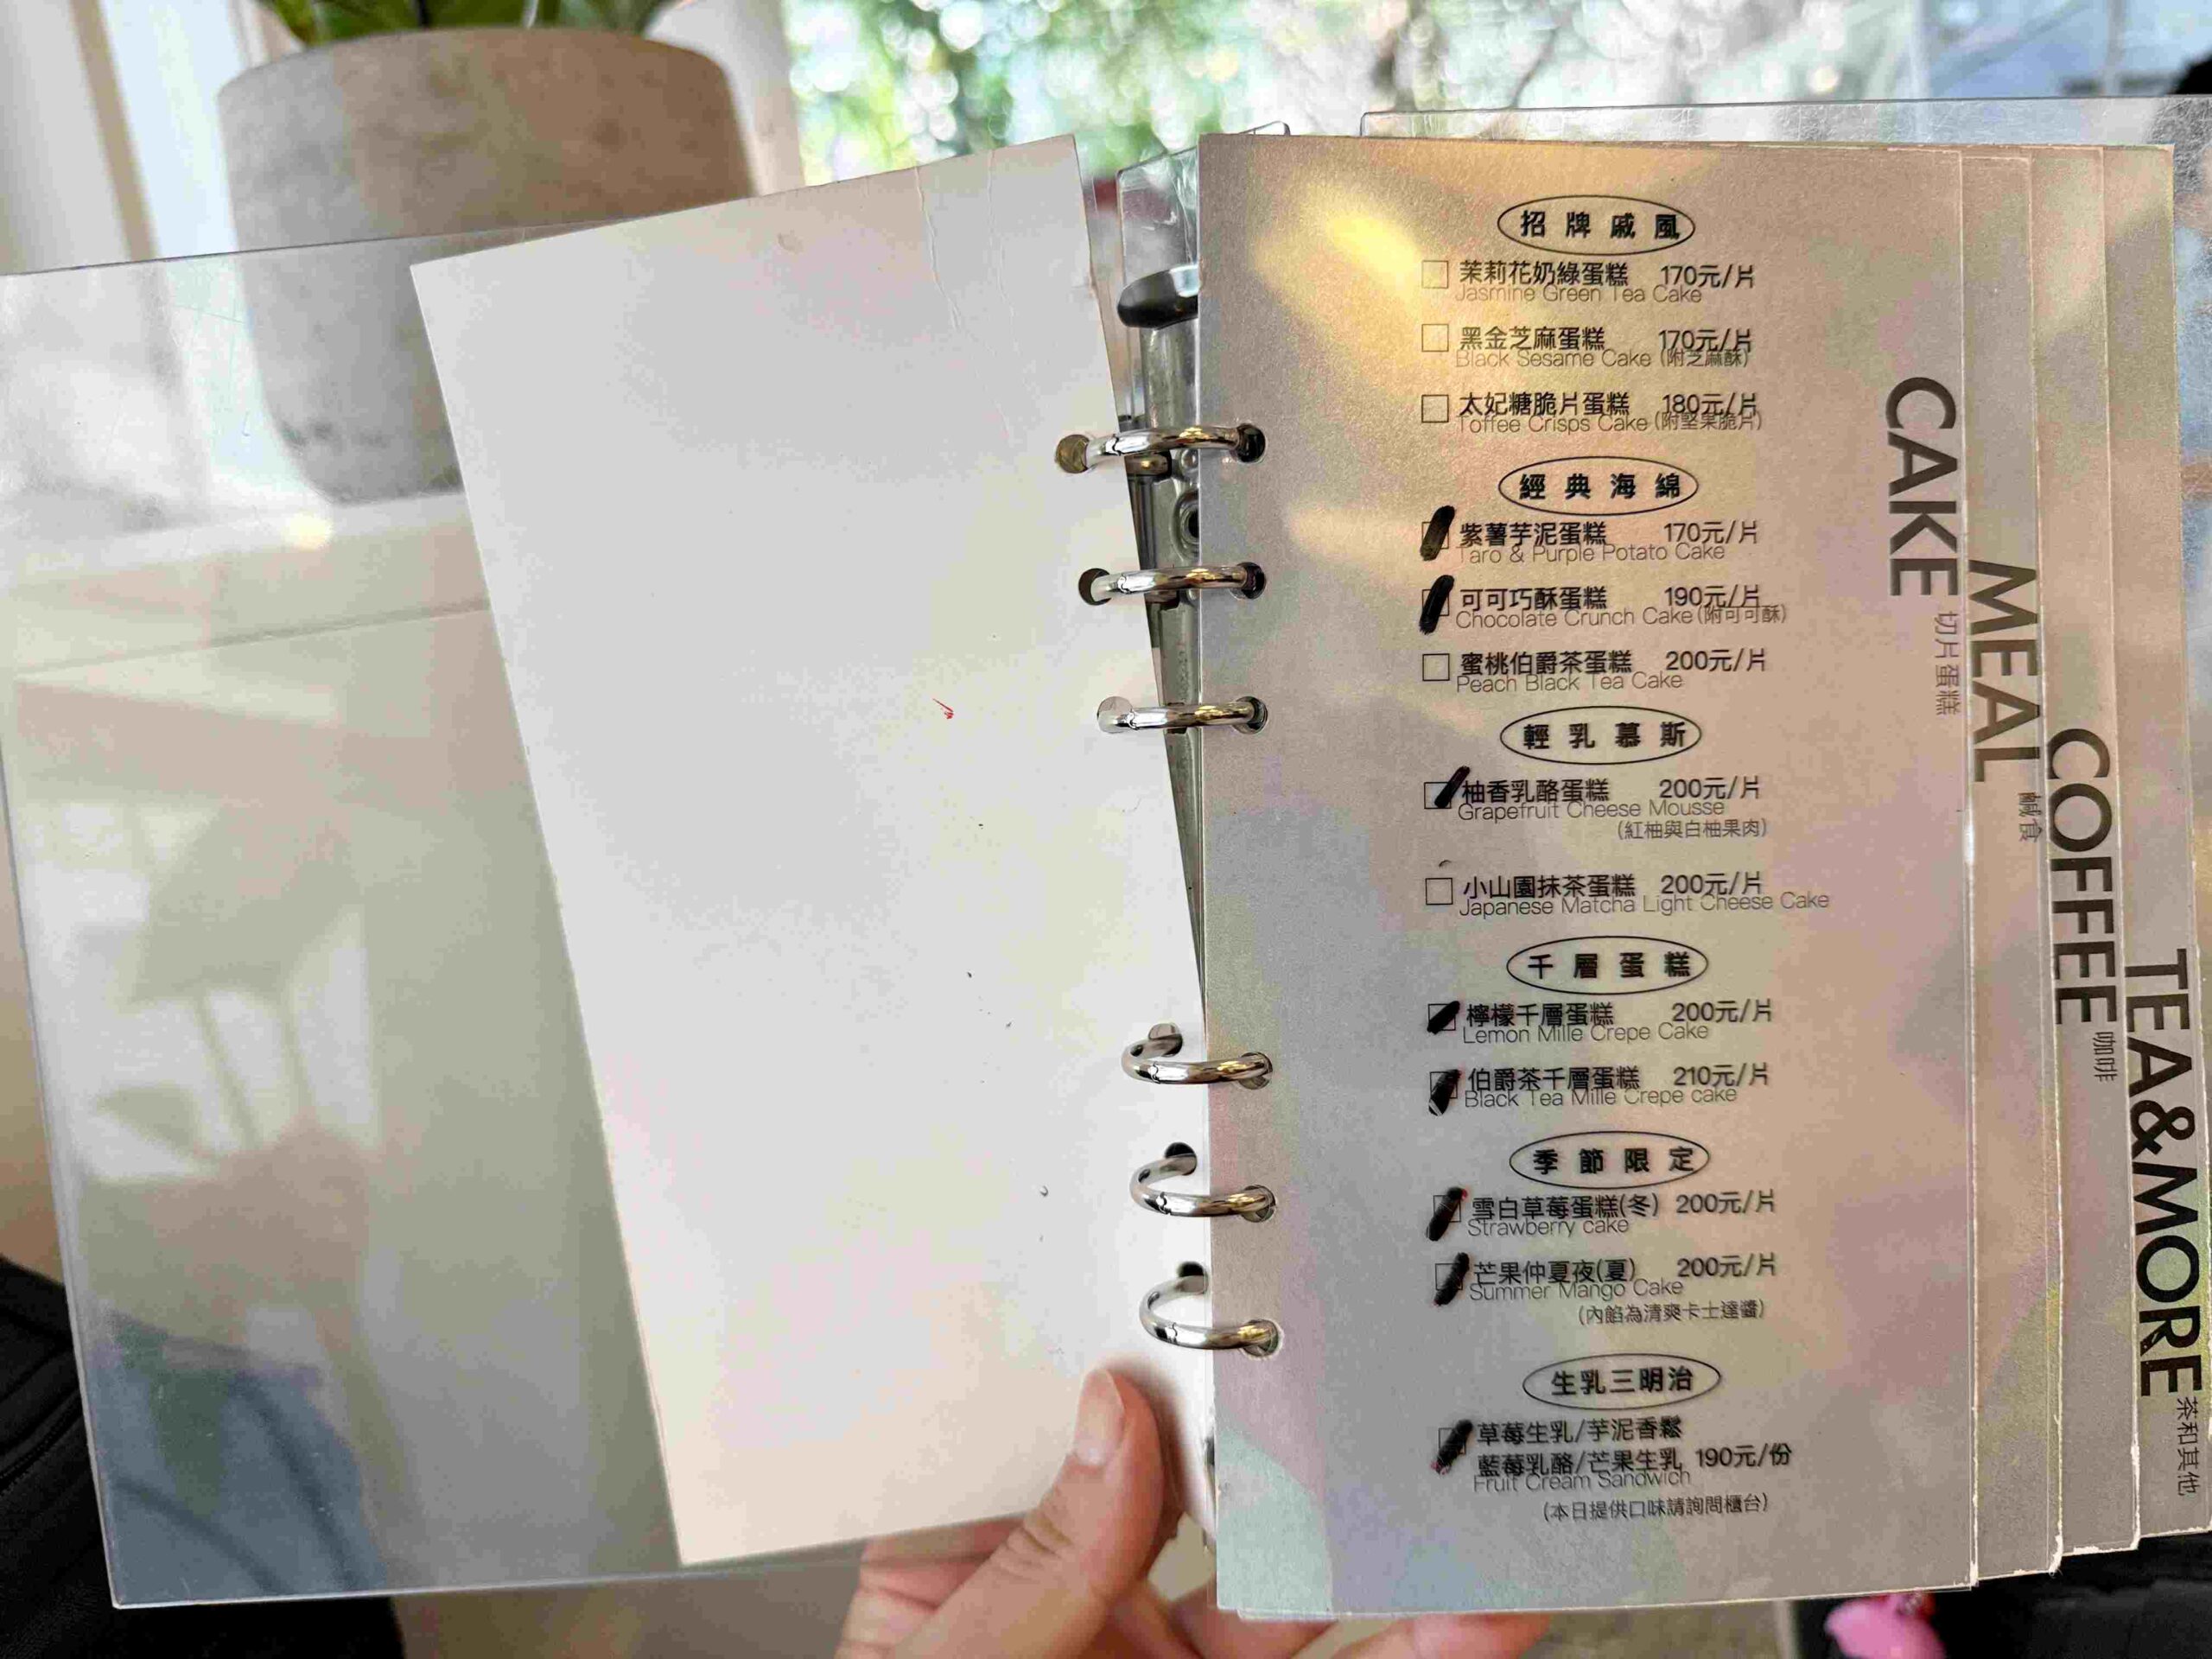 招牌戚風
茉莉花奶綠蛋糕 170元/片
Jasmine Green Tea Cake
黑金芝麻蛋糕 170元/片
Black Sesame Cake (附芝麻酥)
太妃糖脆片蛋糕 180元/片
Toffee Crisps Cake (附堅果脆片)
經典海綿
紫薯芋泥蛋糕 170元/片
Taro & Purple Potato Cake
可可巧酥蛋糕 190元/片
Chocolate Crunch Cake (附可可酥)
蜜桃伯爵茶蛋糕 200元/片
Peach Black Tea Cake
輕乳慕斯
柚香乳酪蛋糕 200元/片
Grapefruit Cheese Mousse
(紅柚與白柚果肉)
小山園抹茶蛋糕 200元/片
Japanese Matcha Light Cheese Cake
千層蛋糕
檸檬千層蛋糕 200元/片
Lemon Mille Crepe Cake
伯爵茶千層蛋糕 210元/片
Black Tea Mille Crepe cake
季節限定
雪白草莓蛋糕(冬) 200元/片
Strawberry cake
芒果仲夏夜(夏) 200元/片
Summer Mango Cake
(內餡為清爽卡士達醬)
生乳三明治
草莓生乳/芋泥香鬆
藍莓乳酪/芒果生乳 190元/份
Fruit Cream Sandwich
(本日提供口味請詢問櫃台)
CAKE 切片蛋糕
MEAL 鹹食
COFFEE 咖啡
TEA&MORE 茶和其他